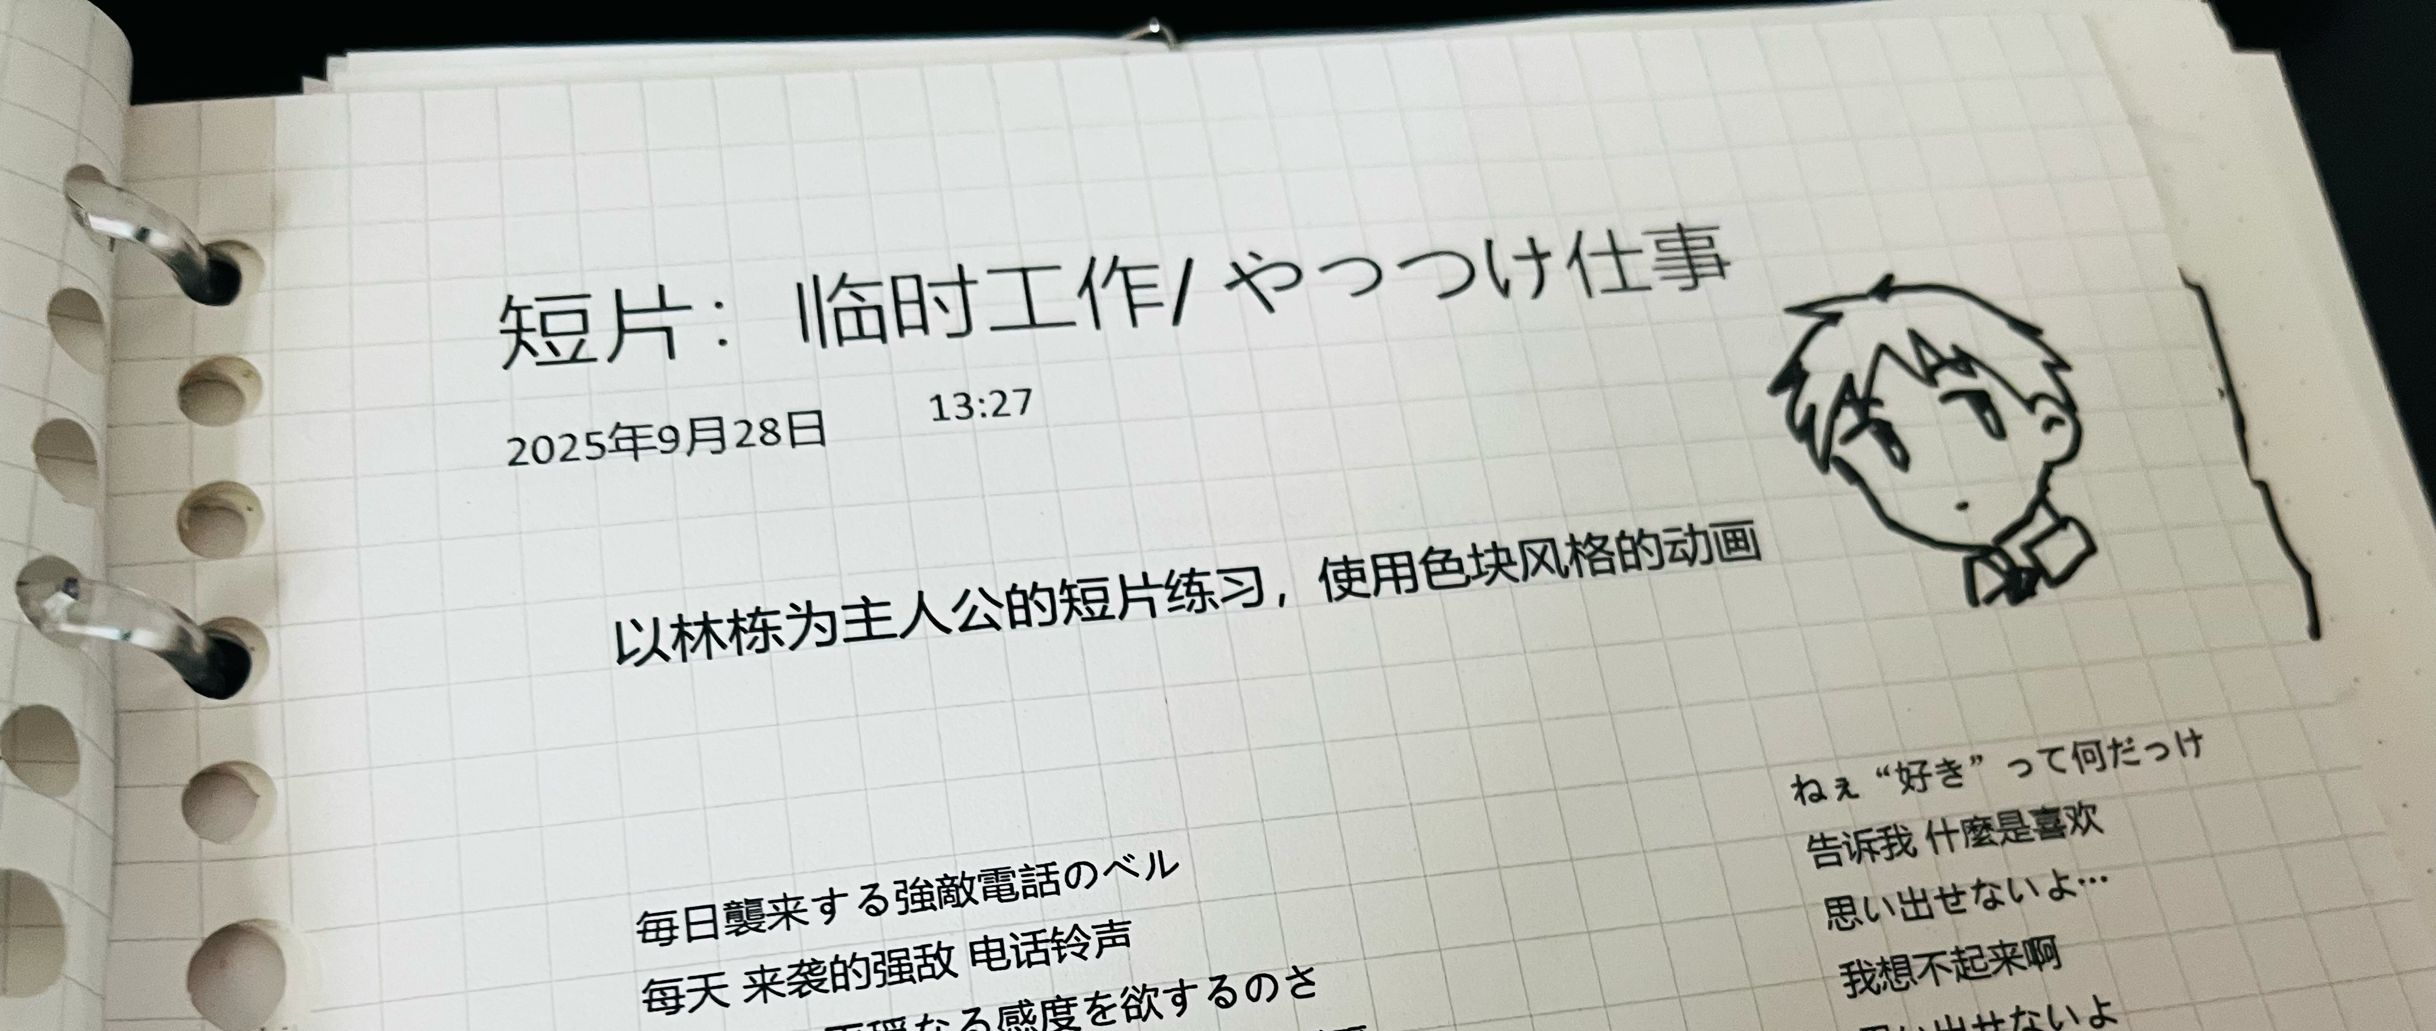 短片：临时工作/ やっつけ仕事
2025年9月28日 13:27
以林栋为主人公的短片练习，使用色块风格的动画
毎日襲来する強敵電話のベル
每天 来袭的强敌 电话铃声
なる感度を欲するのさ
ねぇ “好き” って何だっけ
告诉我 什麼是喜欢
思い出せないよ…
我想不起来啊
思い出せないよ